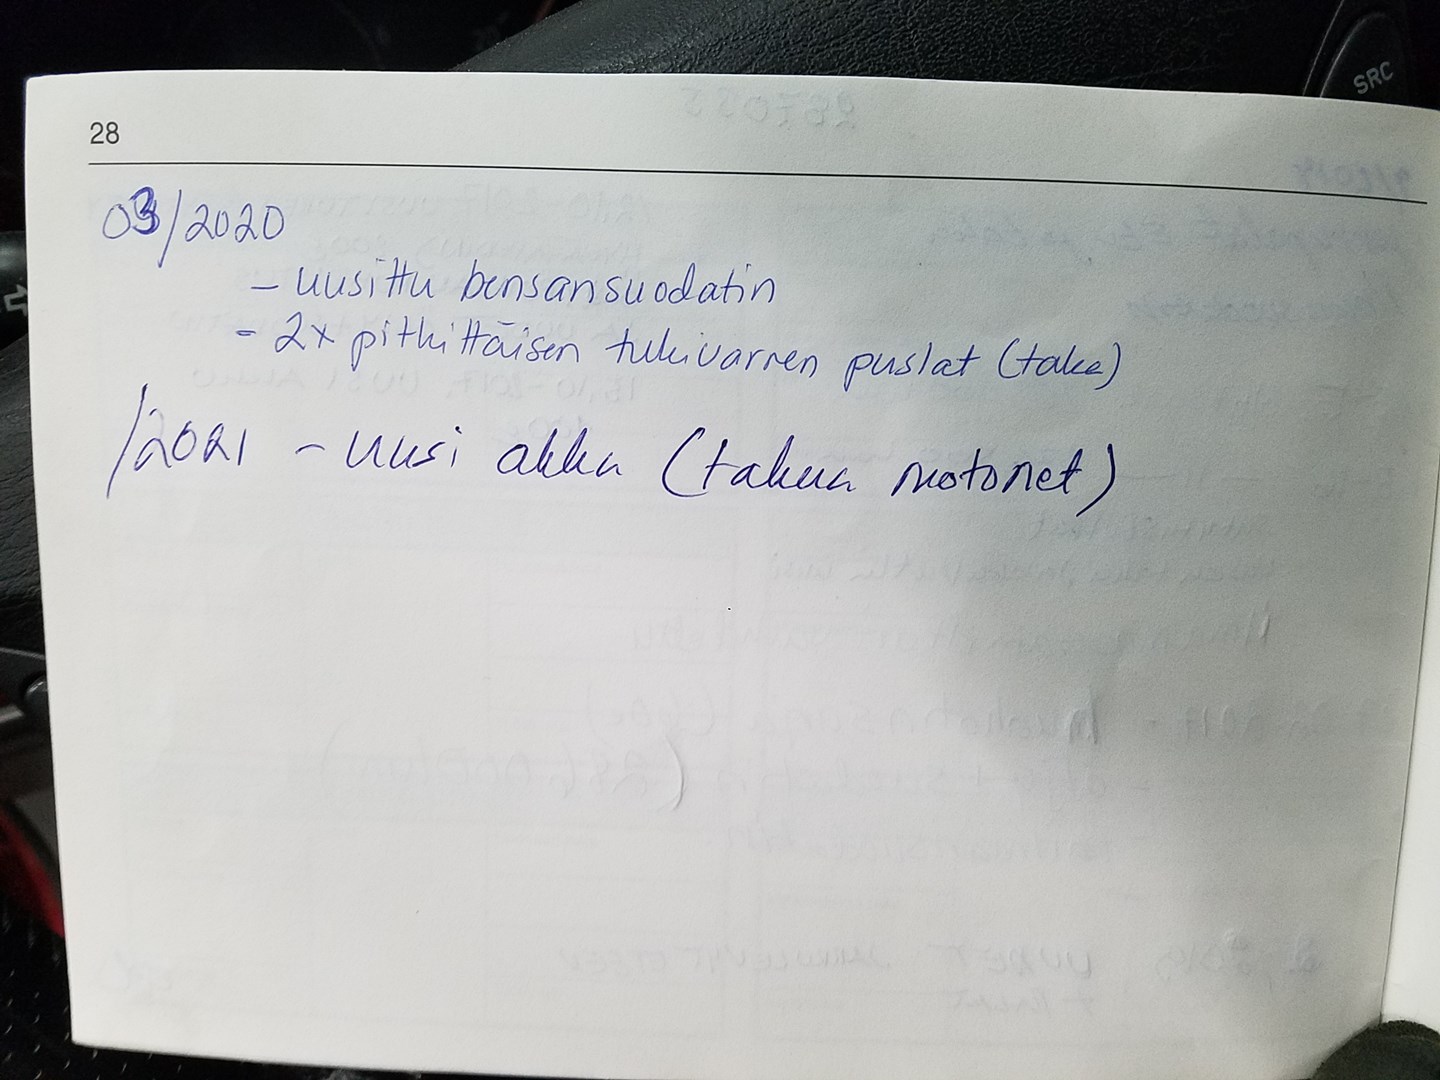 SRC
28
03/2020
- uusittu bensansuodatin
- 2x pitkittäisen tukivarren puslat (taka)
/2021 - Uusi akku (takuu motonet)